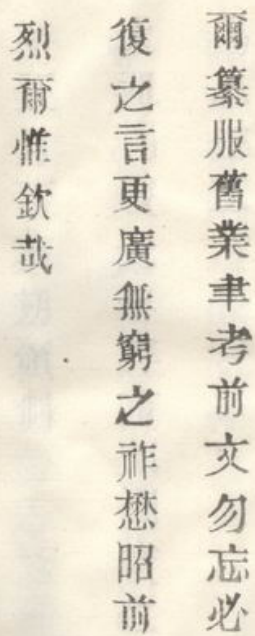 爾纂服舊業聿考前文勿忘必
復之言更廣無窮之祚懋昭前
烈爾惟欽哉